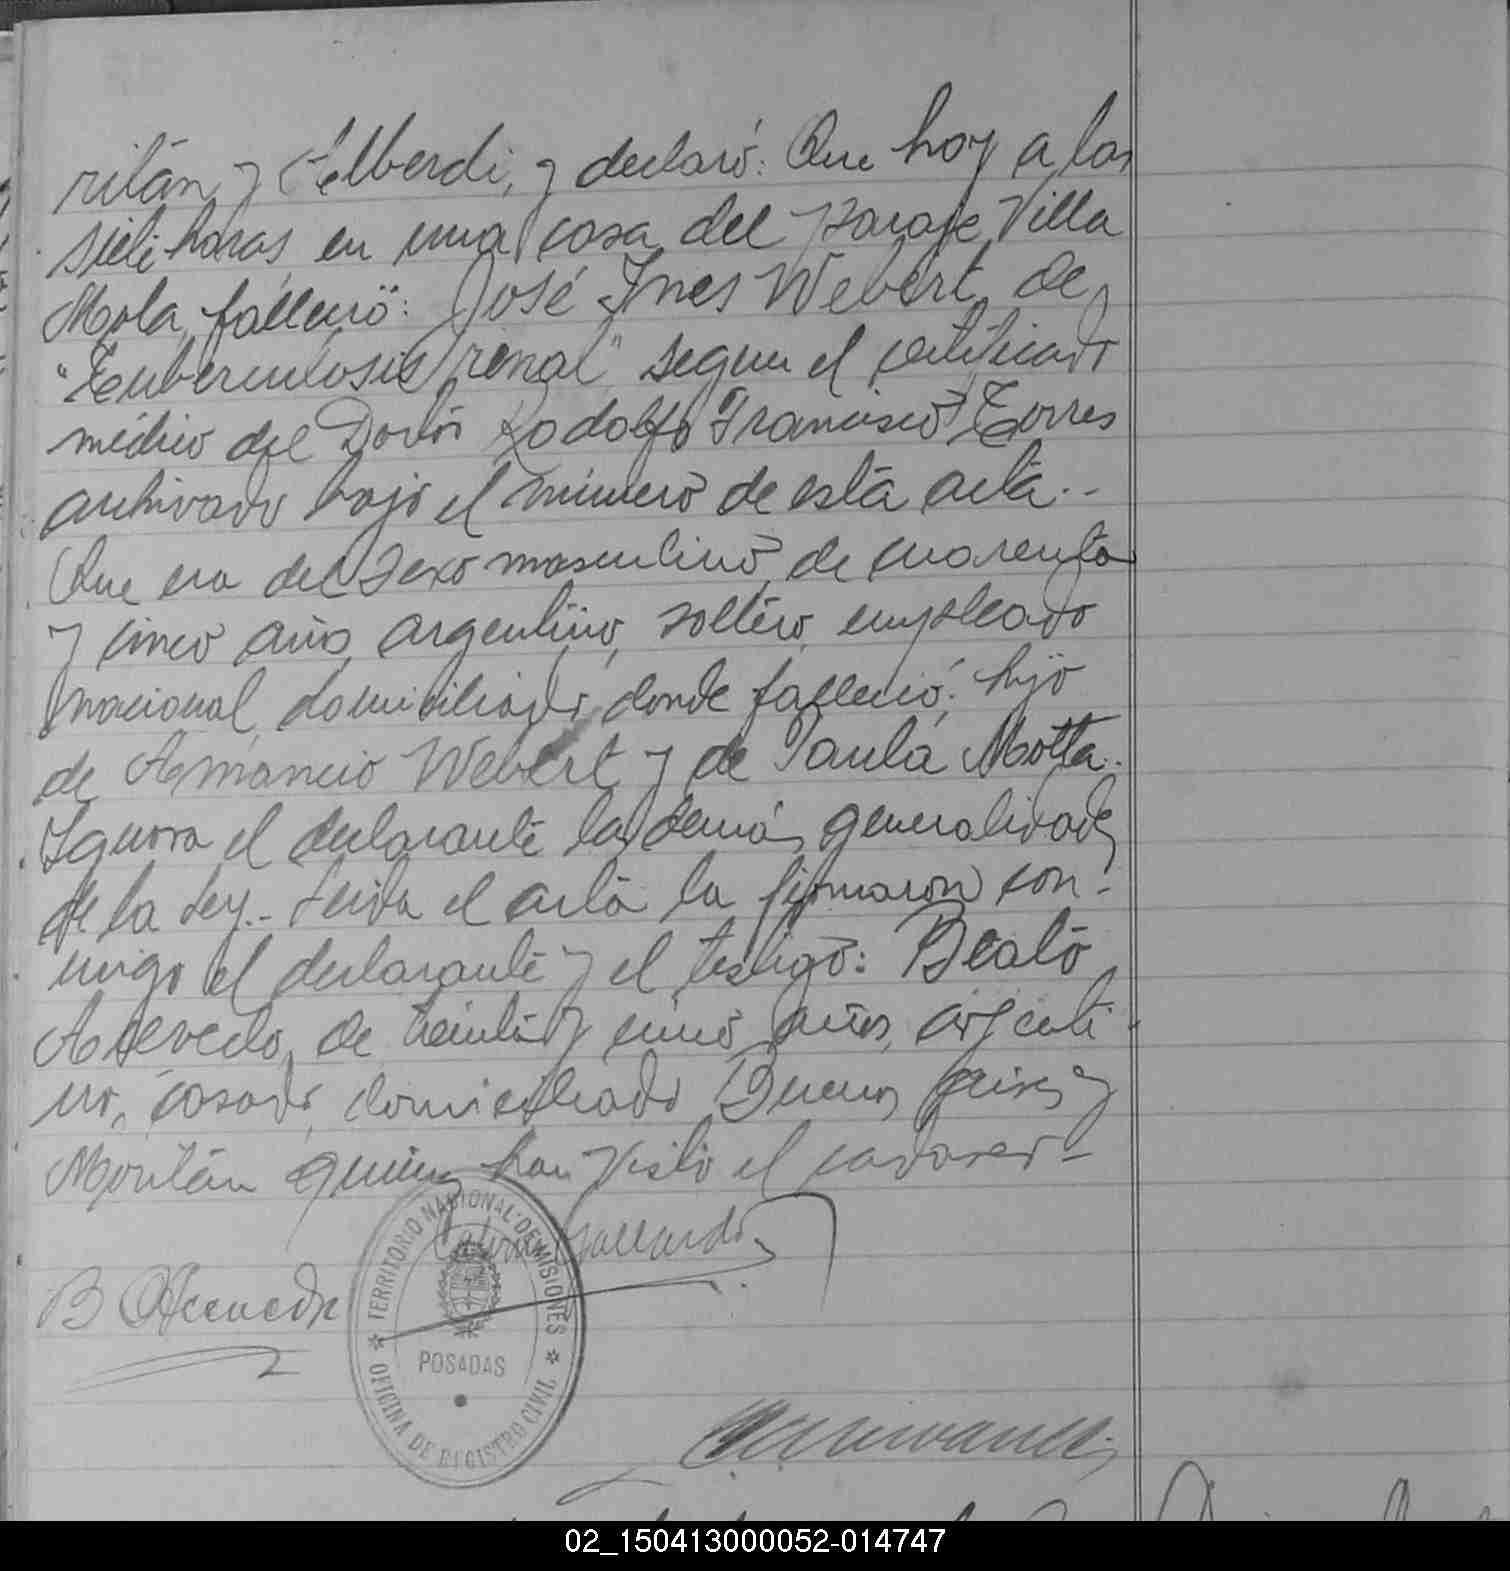 ritán y Alberdi, y declaró: Que hoy a las
siete horas en una casa del paraje Villa
Mola, falleció: José Ines Webert, de
"Tuberculosis renal" segun el certificado
médico del Doctor Rodolfo Francisco Torres
archivado bajo el número de esta acta.-
Que era del sexo masculino, de cuarenta
y cinco años, argentino, soltero, empleado
nacional, domiciliado donde falleció: hijo
de Amancio Webert y de Paula Motta.
Ignora el declarante las demás generalidades
de la Ley.- Leida el acta la firmaron con-
migo el declarante y el testigo: Beato
Acevedo, de treinta y cinco años, argenti-
no, casado, domiciliado Buenos Aires y
Moritán quienes han visto el cadaver-
Gallardo
B Acevedo
TERRITORIO NACIONAL DE MISIONES
POSADAS
OFICINA DE REGISTRO CIVIL
02_150413000052-014747